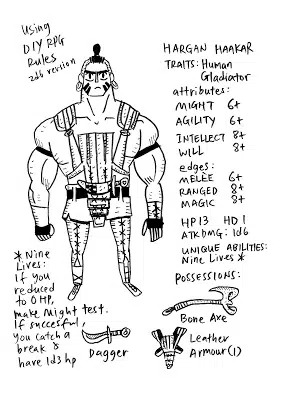 Using
DIY RPG
Rules
2d6 version
HARGAN HAAKAR
TRAITS: Human
Gladiator
attributes:
MIGHT 6+
AGILITY 6+
INTELLECT 8+
WILL 8+
edges:
MELEE 6+
RANGED 8+
MAGIC 8+
HP 13 HD 1
ATK DMG: 1d6
UNIQUE ABILITIES:
Nine Lives *
POSSESSIONS:
Bone Axe
Leather
Armour (1)
Dagger
* Nine
Lives:
If you
reduced
to 0 HP,
make Might test.
If succesful,
you catch a
break &
have 1d3 hp